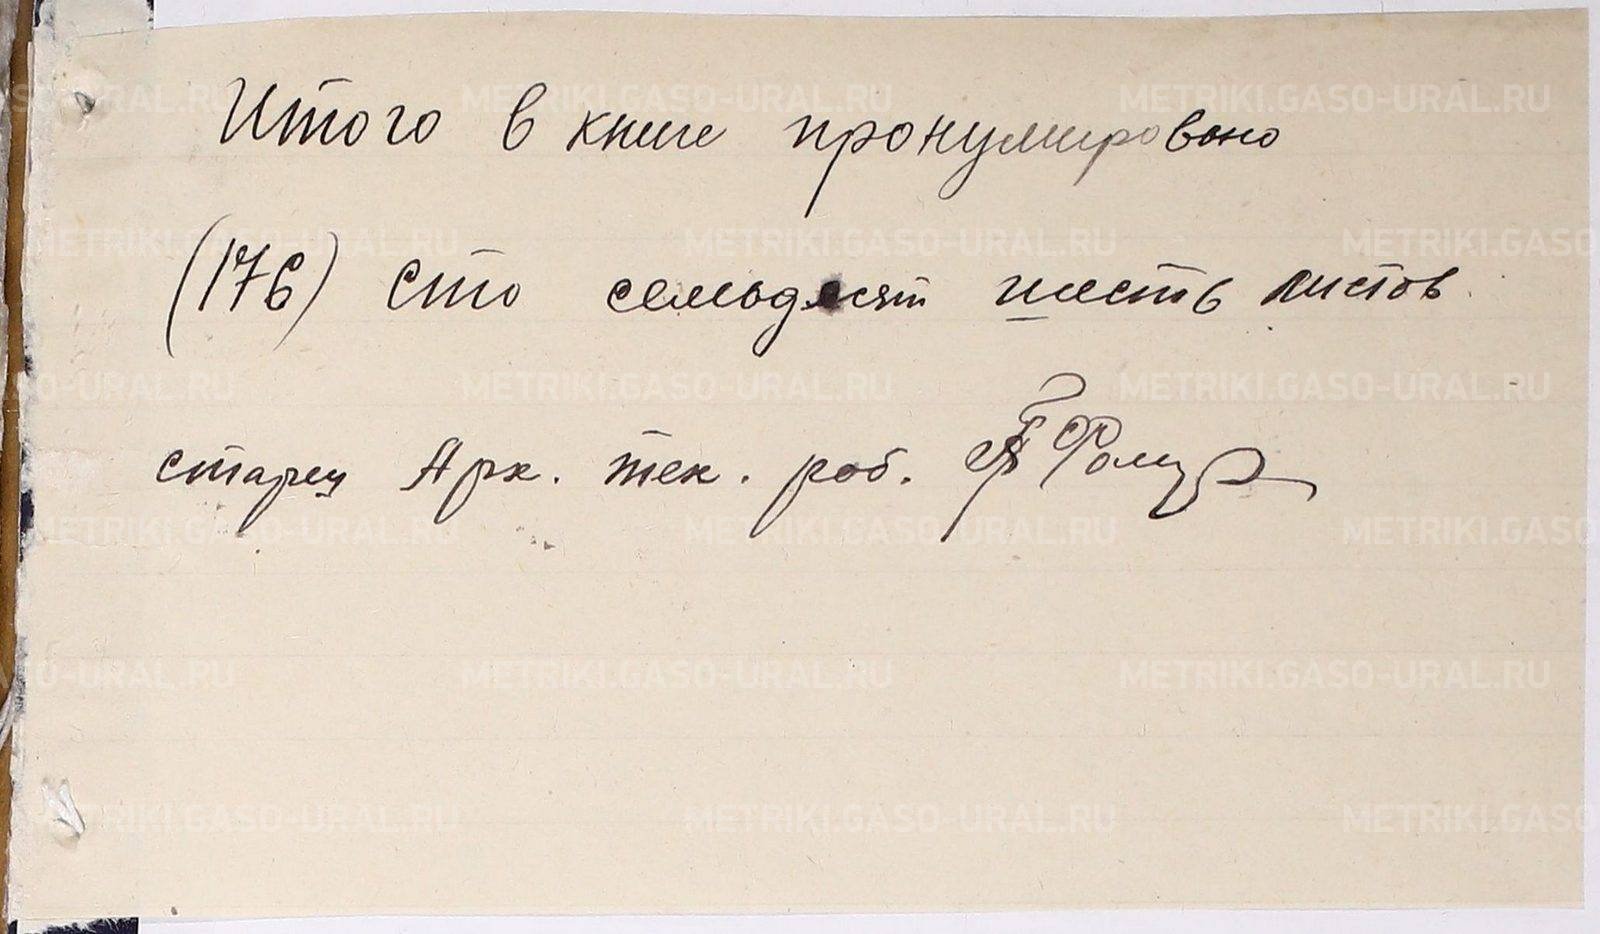 Итого в книге пронумировано
(176) сто семьдесят шесть листов
старш Арх. тех. раб.
METRIKI.GASO-URAL.RU